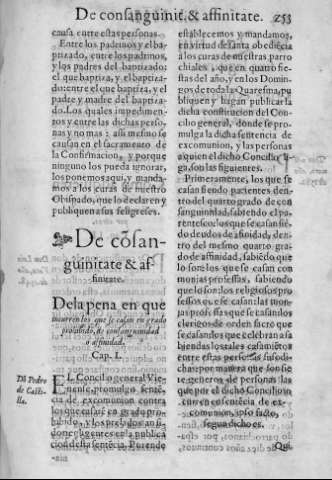 De consanguinit. & affinitate. 253
causa entre estas personas.
Entre los padrinos y el bap
tizado, entre los padrinos,
y los padres del baptizado:
el que baptiza, y el baptiza-
do: entre el que baptiza, y el
padre y madre del baptiza
do. Los quales impedimen-
tos y entre las dichas perso-
nas y no mas: assi mesmo se
causan en el sacramento de
la Confirmacion, y porque
ninguno los pueda ignorar,
los ponemos aqui, y manda-
mos a los curas de nuestro
Obispado, que lo declaren y
publiquen a sus feligreses.
De cōsan-
guinitate & af-
finitate.
De la pena en que
incurren los que se casan en grado
prohibido, de consanguinidad
o afinidad.
Cap. I.
Dō Pedro
de Casti-
lla.
EL Concilio general Vie-
nense, promulgo senten-
cia de excomunion contra
los que casan en grado pro-
hibido, y los prelados an si-
do negligentes en la publica
cion de la sentēcia. Por ende
establecemos y mandamos,
en virtud de santa obediēcia
a los curas de nuestras parro
chiales, que en quatro fie-
stas del año, y en los Domin-
gos de toda la Quaresma, pu
bliquen y hagan publicar la
dicha constitucion del Con-
cilio general, donde se pro-
mulga la dicha sentencia de
excomunion, y las personas
a quien el dicho Concilio li-
ga, son las siguientes.
Primeramente, los que se
casan siendo parientes den-
tro del quarto grado de con
sanguinidad, sabiendo el pa-
rentesco: los que se casan siē
do deudos de afinidad, den-
tro del mesmo quarto gra-
do de affinidad, sabiēdo que
lo son: los que se casan con
monjas professas, sabiendo
que lo son: los religiosos pro
fessos que se casan: las mon-
jas professas que se casan: los
clerigos de orden sacro que
se casan: los que celebran a sa
biendas los tales casamiētos
entre estas personas susodi-
chas: por manera que son sie
te generos de personas las
que por el dicho Concilio in
curren en sentēcia de ex-
comunion, ipso facto,
segun dicho es.
Que